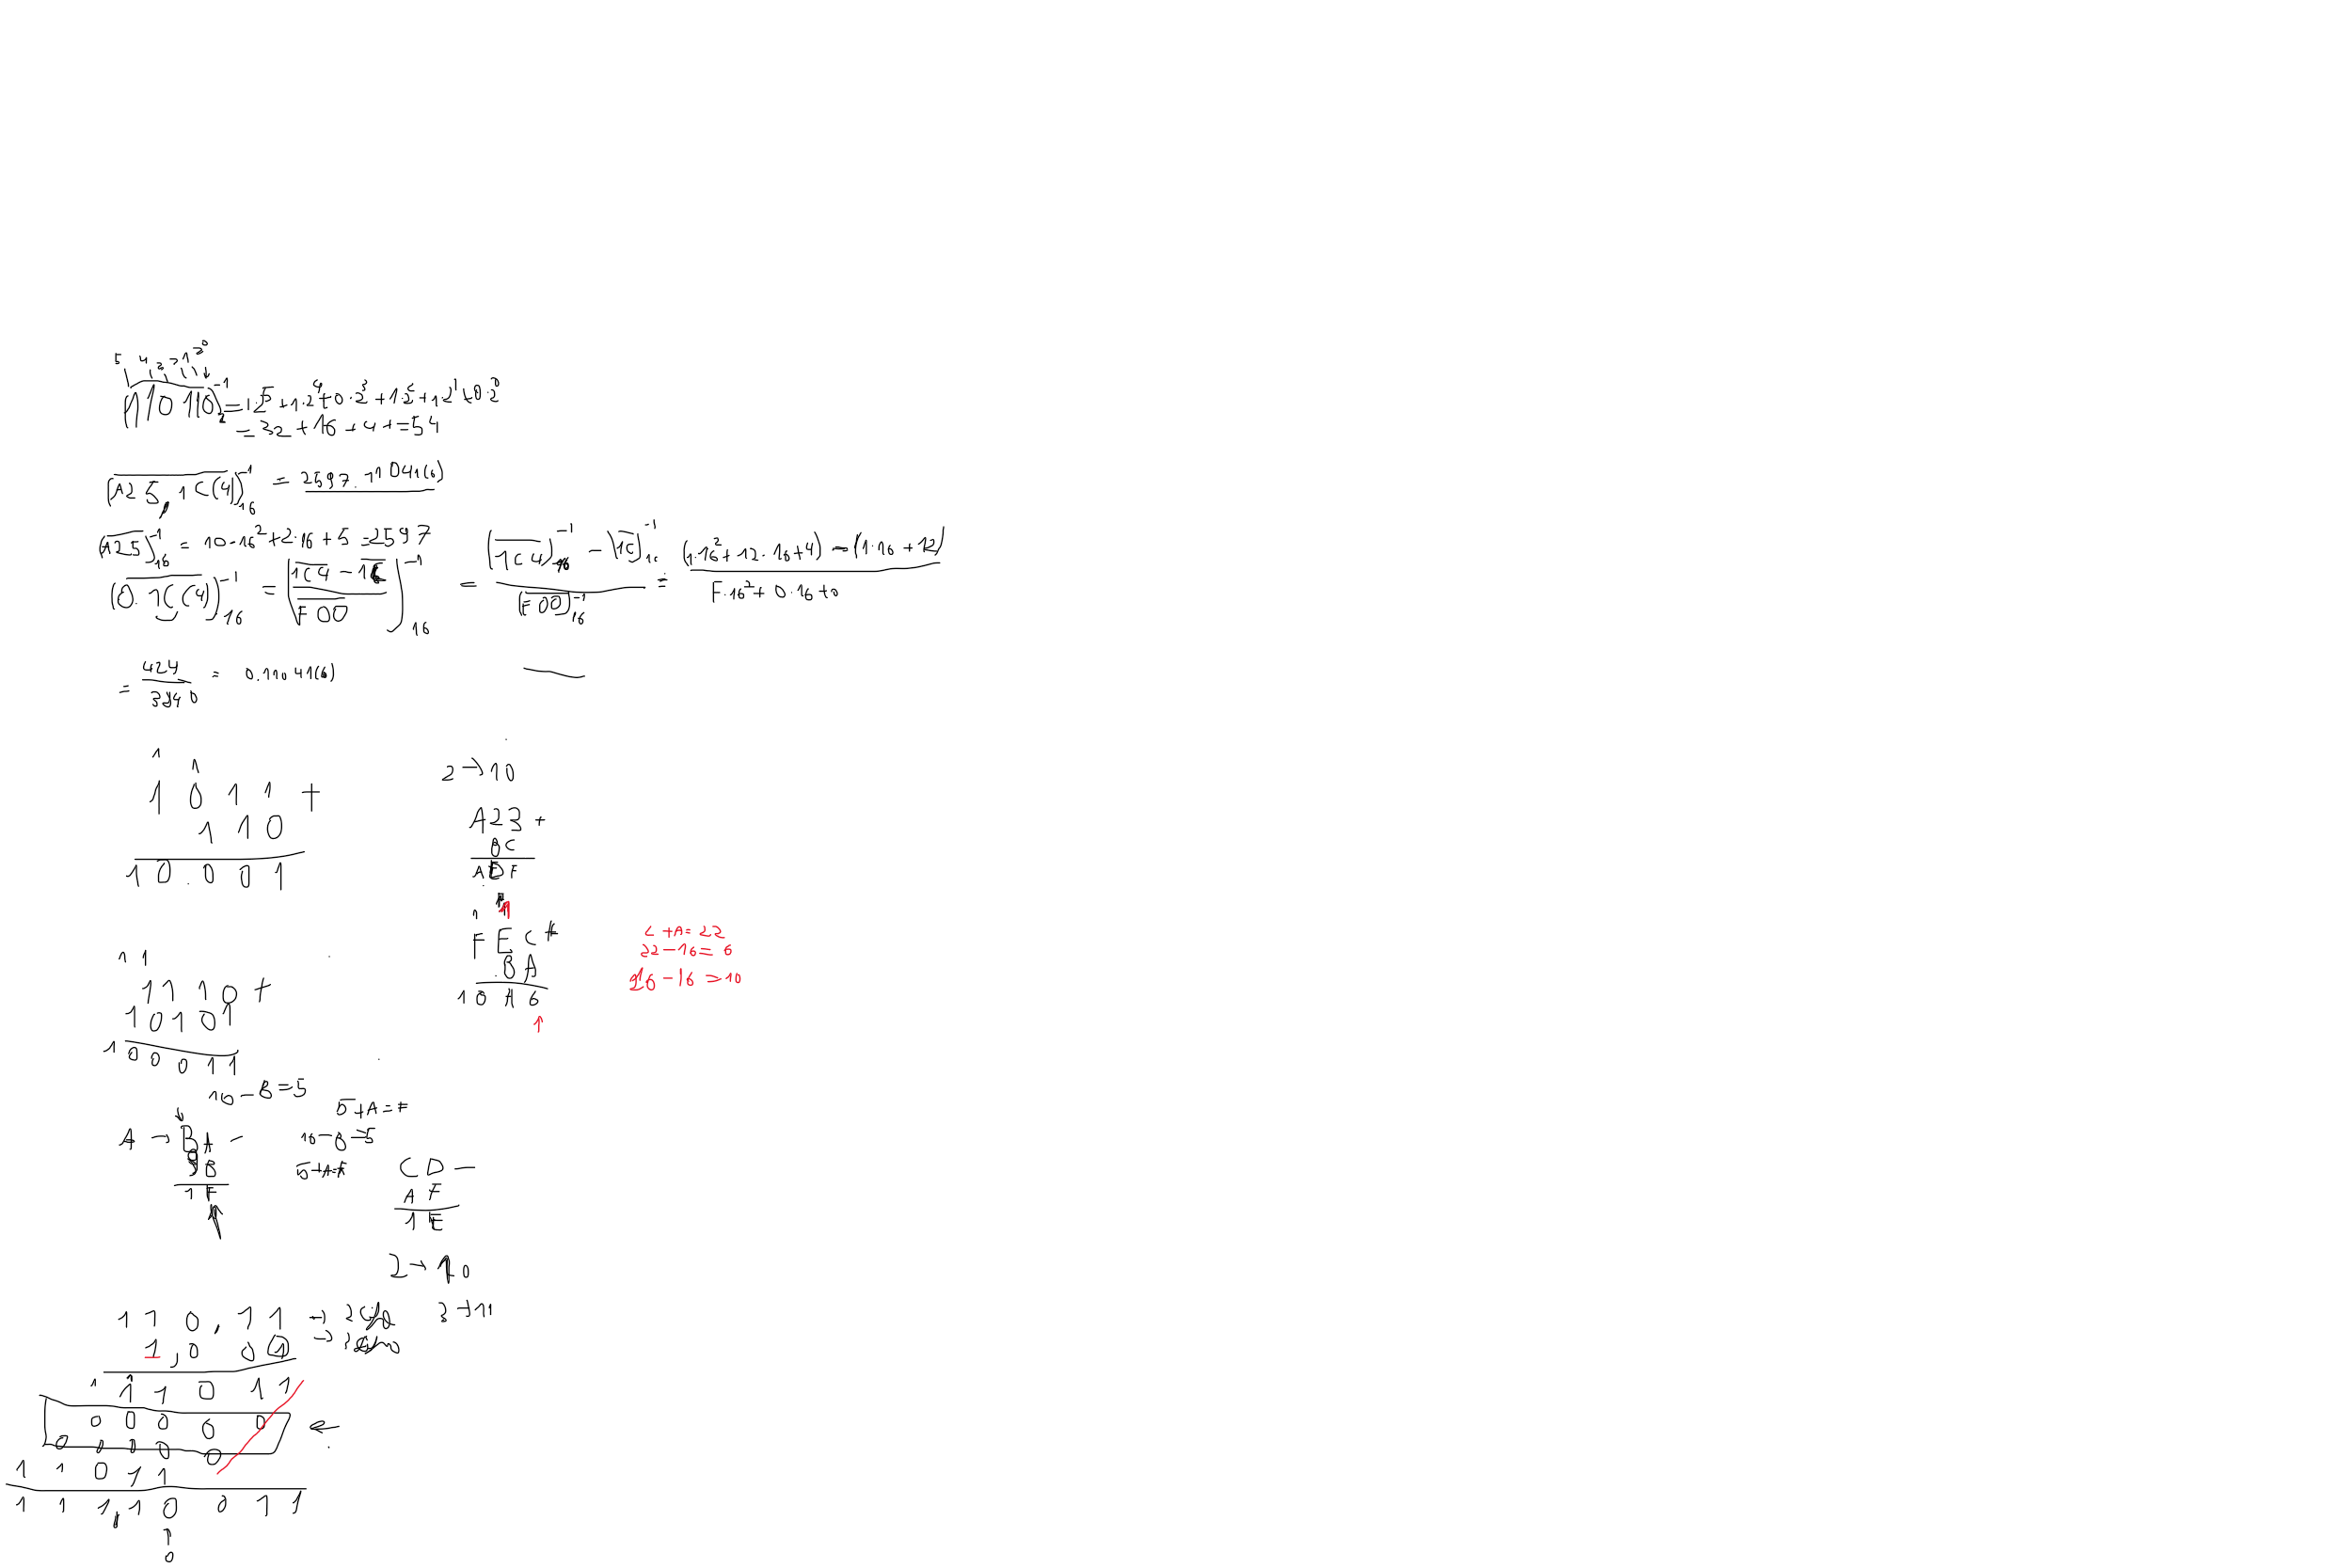 5 4 3 2 1 2^0
(110110)_2^{-1} = 1·2^5 + 1·2^4 + 0·2^3 + 1·2^2 + 1·2^1 + 0·2^0
= 32 + 16 + 4 + = 54
(A25,1C(4))_{16}^{-1} = 2597.11041(6)
(A25)_{16}^{-1} = 10·16^2 + 2·16 + 5 = 2597
(0.1C(4))_{16}^{-1} = (1C4 - 1C / F00)_{16}^{-1} = (1C4)_{16}^{-1} - (1C)_{16}^{-1} / (F00)_{16}^{-1} = (1·16^2 + 12·16 + 4) - (1·16 + 12) / F·16^2 + 0·16 + 0
= 424 / 3840 = 0.11041(6)
1 1
1 0 1 1 +
1 1 0
1 0 . 0 0 1
2 → 10
A23 +
BC
A D F
1 1
F E C +
B A
1 0 A 6
C + A = 22
22 - 16 = 6
26 - 16 = 10
1 1
1 1 1 0 +
1 0 1 0 1
1 0 0 0 1 1
10 - B = 5
5 + A = F
A → B A -
10 - B = 5
9 B
5 + A = F
1 F
C D -
A F
1 E
2 → 10
1 1 0 , 1 1 → 2
3 → 11
1 , 0 0 1 → 3
1 1
1 1 0 1 1
0 0 0 0 0
0 0 0 0 0
1 1 0 1 1
1 1 1 , 1 0 0 1 1
0